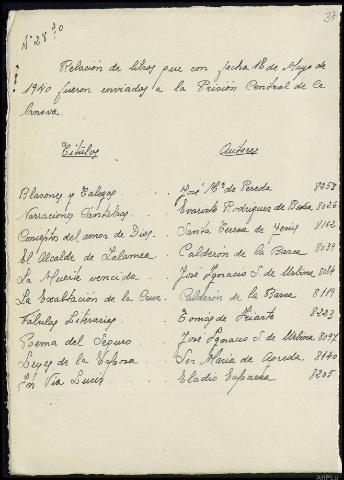 37
Nº 28
Relación de libros que con fecha 18 de Mayo de
1940 fueron enviados a la Prisión Central de Ce
lanova.
Títulos Autores
Blasones y Talegas. José Mª de Pereda 8058
Narraciones Cántabras. Evaristo Rodriguez de Bedia 8026
Conceptos del amor de Dios. Santa Teresa de Jesús 8162
El Alcalde de Zalamea. Calderón de la Barca 8039
La Muerte vencida José Ignacio S. de Urbina 8084
La Exaltación de la Cruz. Calderón de la Barca 8119
Fábulas Literarias. Tomás de Iriarte 8223
Poema del Séguro. José Ignacio S. de Urbina 8097
Leyes de la Esposa Sor María de Agreda 8140
En Via Lucis. Eladio Esparza 8205
AHPLU